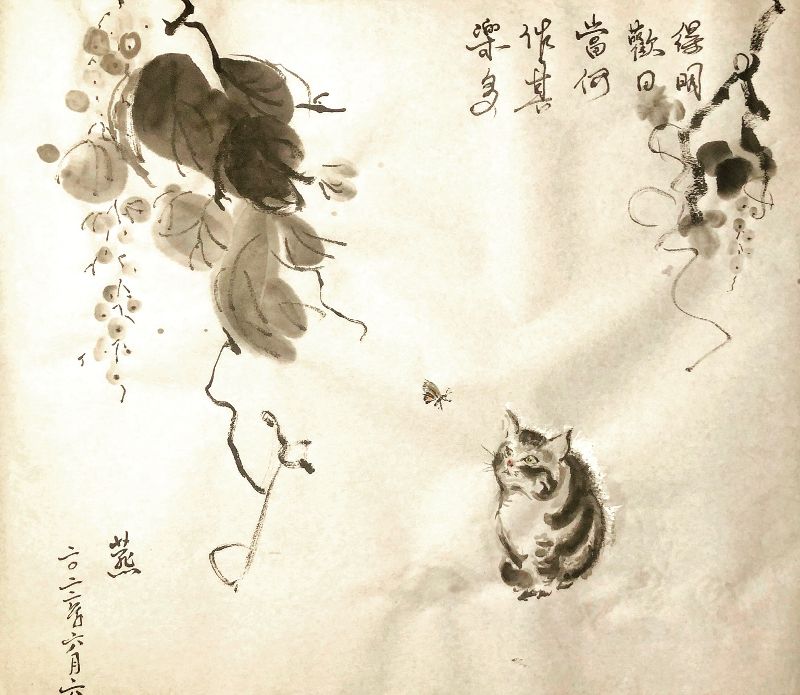 得歡當作樂
明日何其多
燕
二〇二二年六月六